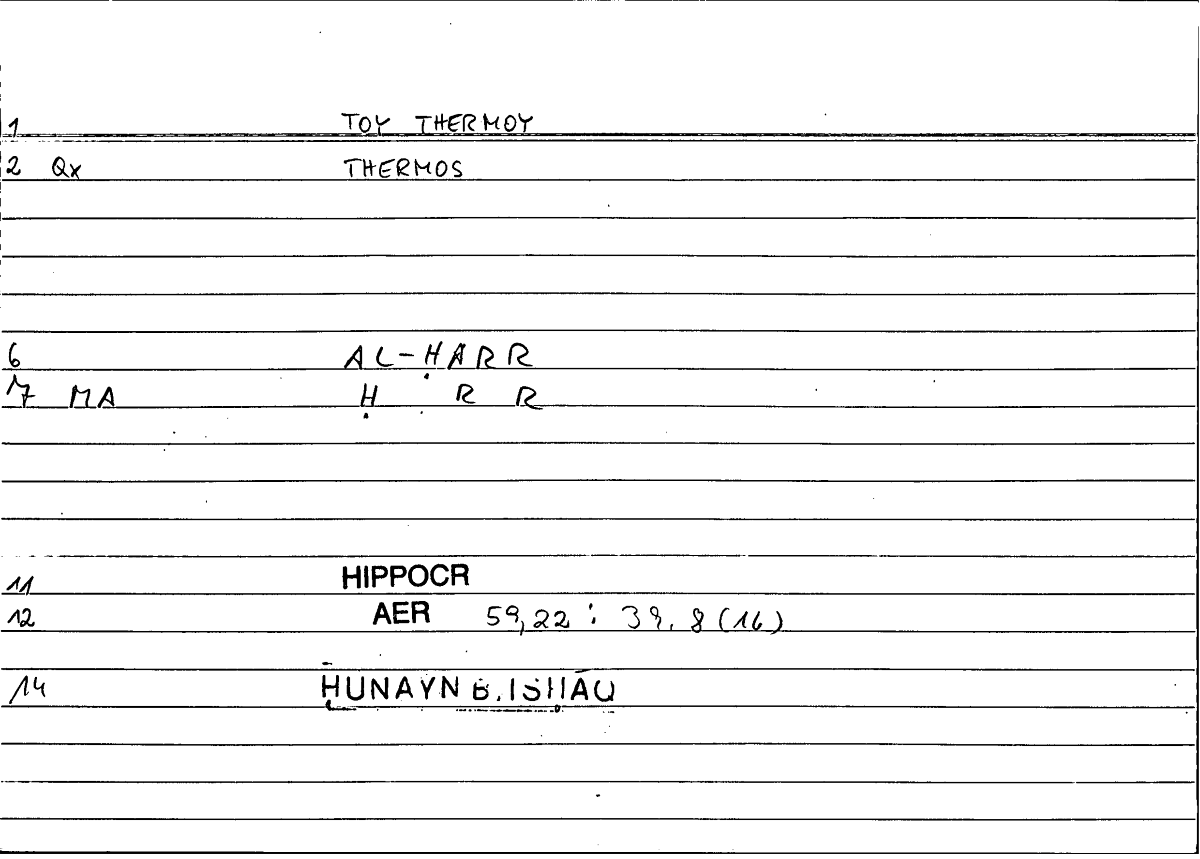 1 TOY THERMOY
2 Qx THERMOS
6 AL-ḤARR
7 MA Ḥ R R
11 HIPPOCR
12 AER 59,22 : 39. 8 (16)
14 ḤUNAYN B. ISḤĀQ